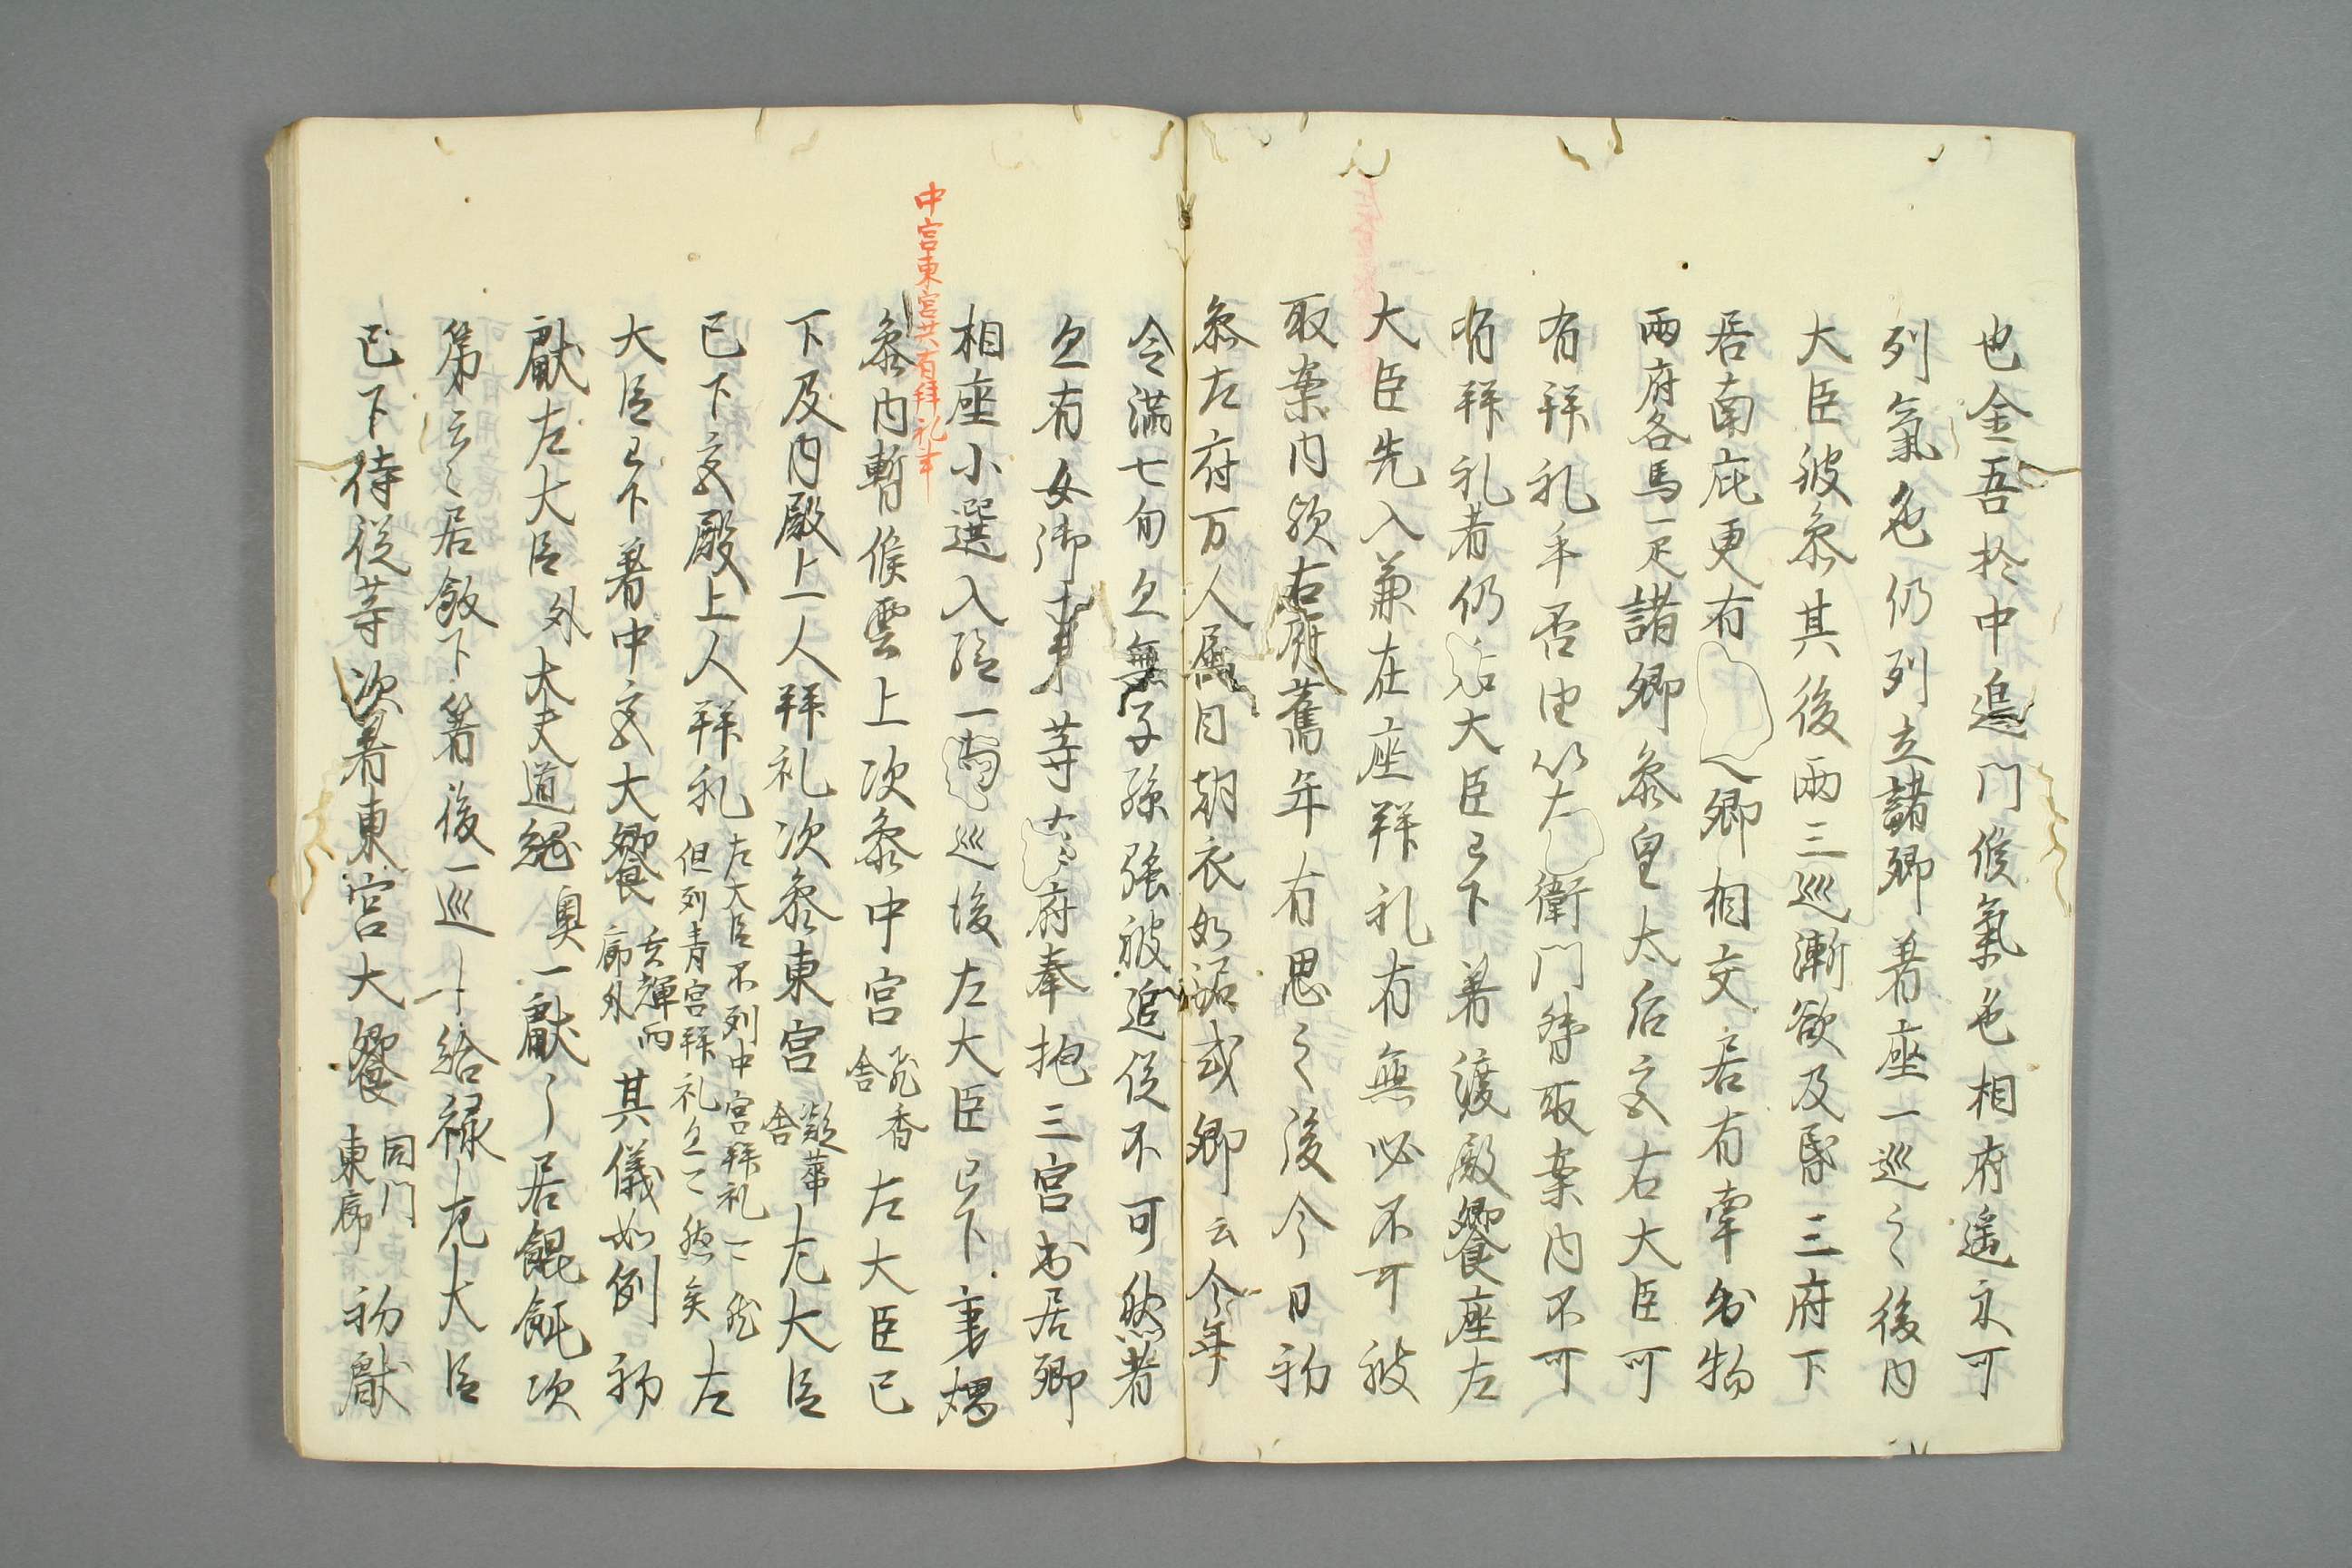 也金吾於中追門候氣色相府遥示可
列氣色仍列立諸卿着座一巡之後内
大臣被参其後両三巡漸欲及昏三府下
居南庇更有卿相交居有牽出物
両府各馬一疋諸卿参皇太后宮右大臣可
有拝礼乎否由以左衛門督取案内不可
有拝礼者仍大臣已下着渡殿饗座左
大臣先入兼在座拝礼有無必不可被
取案内歟右府旧年有思之後今日初
参左府万人属目朝衣如或卿云今年
令満七旬亦無子孫強被追従不可然者
亦有女御事等左府奉抱三宮出居卿
相座小選入給一両巡後左大臣已下
参内暫候雲上次参中宮飛香舎左大臣已
中宮東宮共有拝礼事
下及内殿上人拝礼次参東宮凝華舎左大臣
已下宮殿上人拝礼左大臣不列中宮拝礼但列青宮拝礼左
大臣已下着中宮大饗玄輝西廊外其儀如例初
献左大臣外大夫道綱奥一献々居餛飩次
第云々居飯下箸後一巡給禄左大臣
已下侍従等次着東宮大饗同門東廊初献